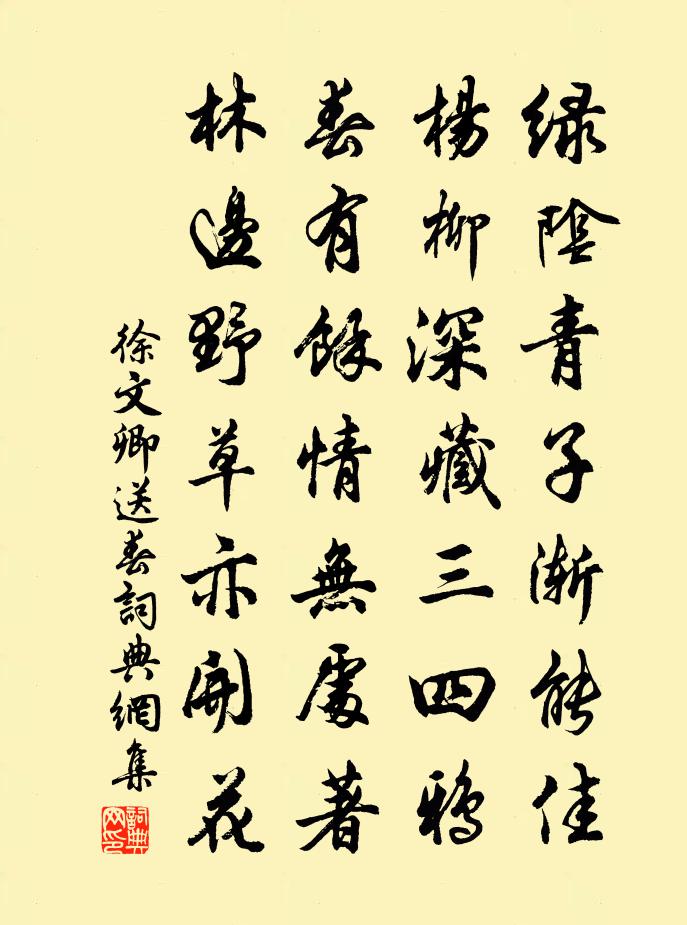 緑陰青子漸能佳
楊柳深藏三四鴉
春有餘情無處著
林邊野草亦開花
徐文卿送春詞典網集
詞典網印